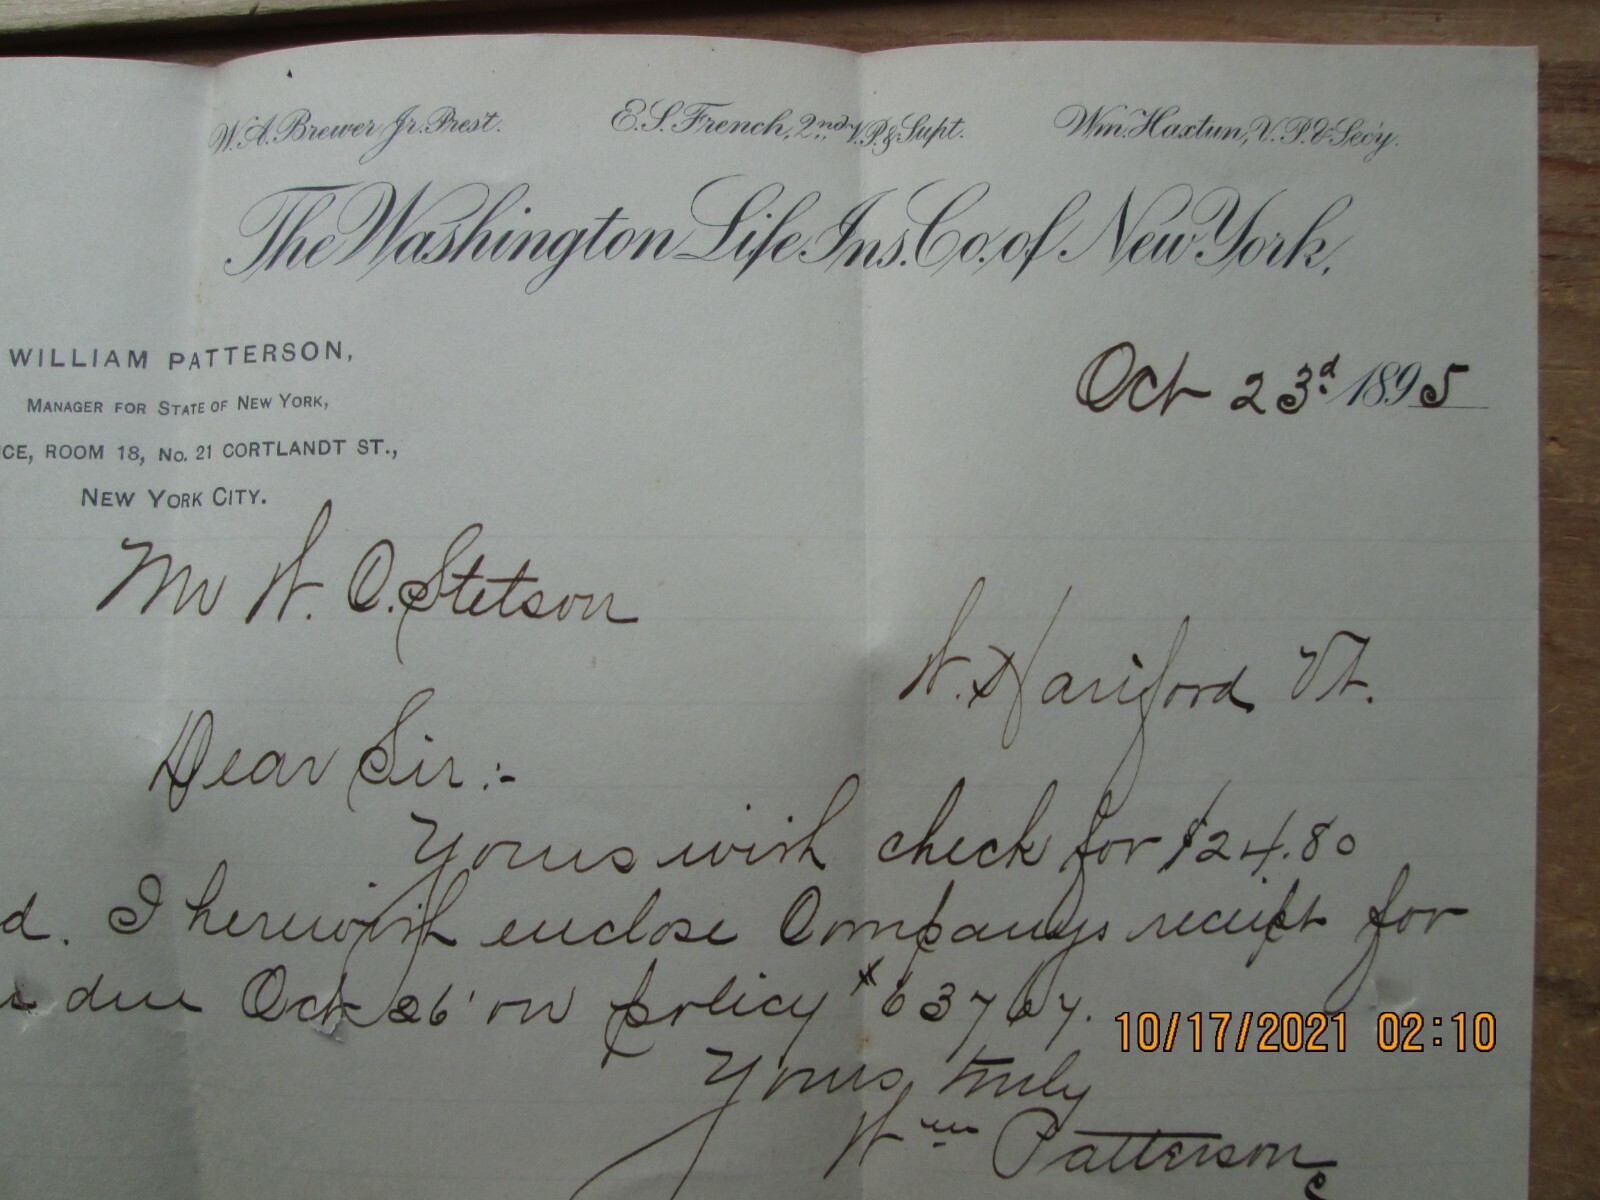 W. A. Brewer Jr. Prest. E. S. French, 2nd V. P. & Supt. Wm. Haxtun, V. P. & Secy.
The Washington Life Ins. Co. of New York.
WILLIAM PATTERSON,
MANAGER FOR STATE OF NEW YORK,
CE, ROOM 18, No. 21 CORTLANDT ST.,
NEW YORK CITY.
Oct 23d 1895
Mr W. O. Stetson
W. Hartford Vt.
Dear Sir:-
Yours with check for $24.80
d. I herewith enclose Companys receipt for
due Oct 26' on policy # 63767.
Yours truly
Wm Patterson
10/17/2021 02:10